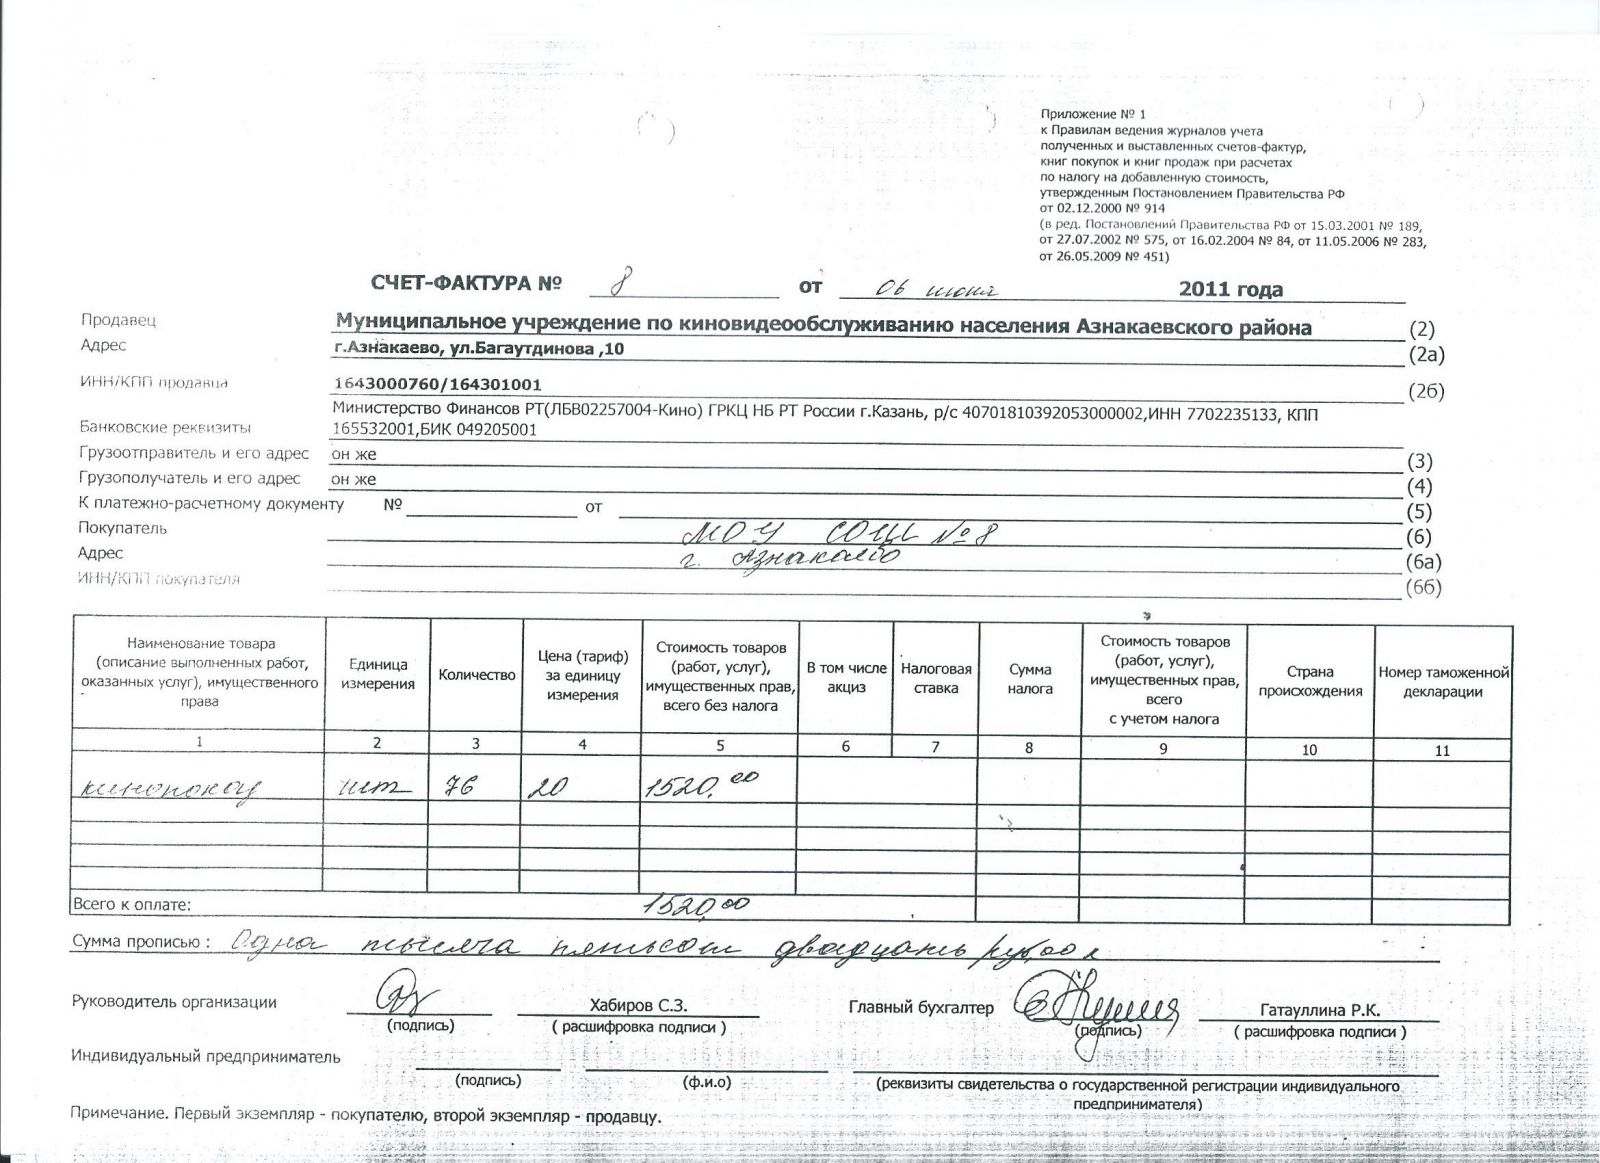 Приложение № 1
к Правилам ведения журналов учета
полученных и выставленных счетов-фактур,
книг покупок и книг продаж при расчетах
по налогу на добавленную стоимость,
утвержденным Постановлением Правительства РФ
от 02.12.2000 № 914
(в ред. Постановлений Правительства РФ от 15.03.2001 № 189,
от 27.07.2002 № 575, от 16.02.2004 № 84, от 11.05.2006 № 283,
от 26.05.2009 № 451)
СЧЕТ-ФАКТУРА № 8 от 06 июня 2011 года
Продавец Муниципальное учреждение по киновидеообслуживанию населения Азнакаевского района (2)
Адрес г.Азнакаево, ул.Багаутдинова ,10 (2а)
ИНН/КПП продавца 1643000760/164301001 (2б)
Министерство Финансов РТ(ЛБВ02257004-Кино) ГРКЦ НБ РТ России г.Казань, р/с 40701810392053000002,ИНН 7702235133, КПП
Банковские реквизиты 165532001,БИК 049205001
Грузоотправитель и его адрес он же (3)
Грузополучатель и его адрес он же (4)
К платежно-расчетному документу № от (5)
Покупатель МОУ СОШ №8 (6)
Адрес г. Азнакаево (6а)
ИНН/КПП покупателя (6б)
Наименование товара
(описание выполненных работ,
оказанных услуг), имущественного
права
Единица
измерения
Количество
Цена (тариф)
за единицу
измерения
Стоимость товаров
(работ, услуг),
имущественных прав,
всего без налога
В том числе
акциз
Налоговая
ставка
Сумма
налога
Стоимость товаров
(работ, услуг),
имущественных прав,
всего
с учетом налога
Страна
происхождения
Номер таможенной
декларации
1 2 3 4 5 6 7 8 9 10 11
кинопоказ шт 76 20 1520,00
Всего к оплате: 1520,00
Сумма прописью : Одна тысяча пятьсот двадцать руб,00 к
Руководитель организации Хабиров С.З. Главный бухгалтер Гатауллина Р.К.
(подпись) ( расшифровка подписи ) (подпись) ( расшифровка подписи )
Индивидуальный предприниматель
(подпись) (ф.и.о) (реквизиты свидетельства о государственной регистрации индивидуального
предпринимателя)
Примечание. Первый экземпляр - покупателю, второй экземпляр - продавцу.